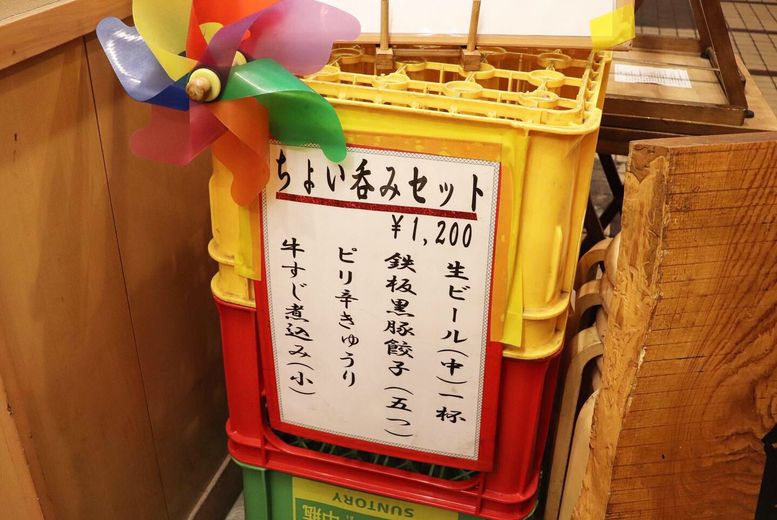 ちょい呑みセット
¥1,200
生ビール(中)一杯
鉄板黒豚餃子(五つ)
ピリ辛きゅうり
牛すじ煮込み(小)
SUNTORY
中瓶